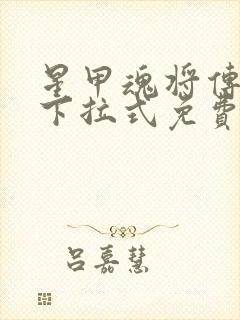 星甲魂将傳
下拉式免費
吕嘉慧